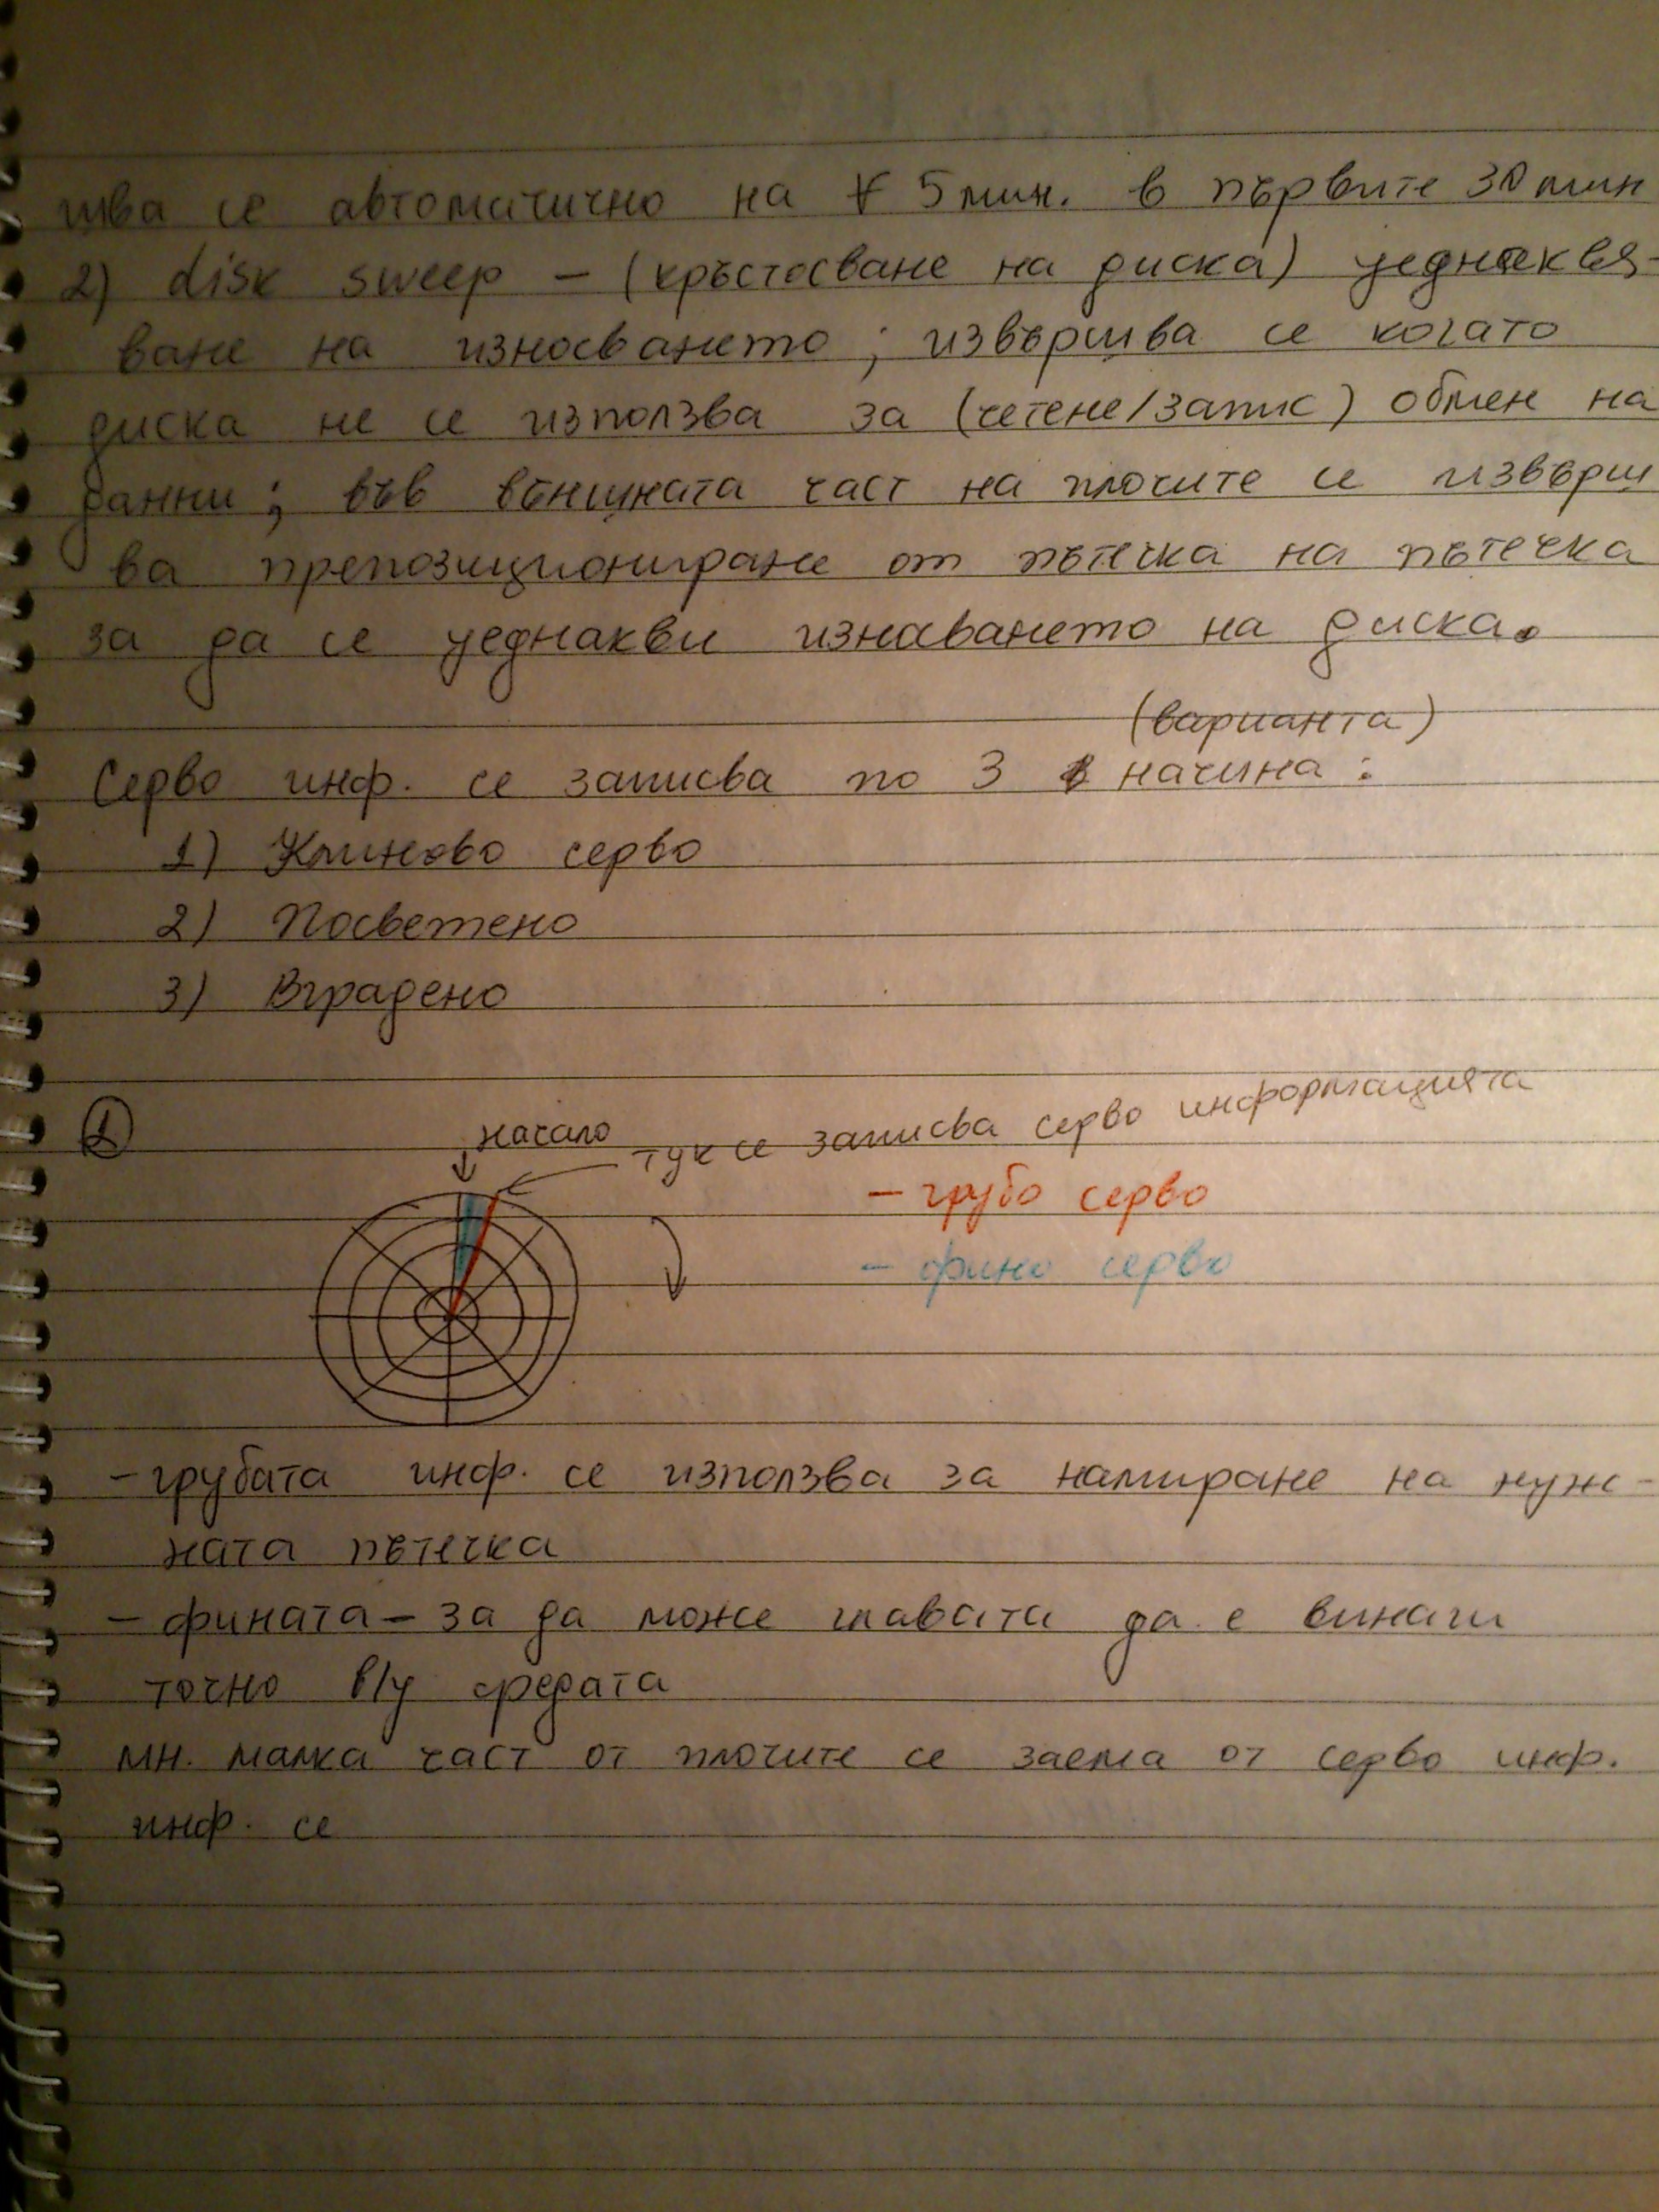 шва се автоматично на ∀ 5 мин. в първите 30 мин
2) disk sweep – (кръстосване на диска) уеднаквя-
ване на износването ; извършва се когато
диска не се използва за (четене/запис) обмен на
данни ; във външната част на плочите се извърш
ва препозициониране от пътечка на пътечка
за да се уеднакви износването на диска.
(варианта)
Серво инф. се записва по 3 начина :
1) Клиново серво
2) Посветено
3) Вградено
1
начало
тук се записва серво информацията
– грубо серво
– фино серво
– грубата инф. се използва за намиране на нуж-
ната пътечка
– фината – за да може главата да е винаги
точно в/у средата
мн. малка част от плочите се заема от серво инф.
инф. се